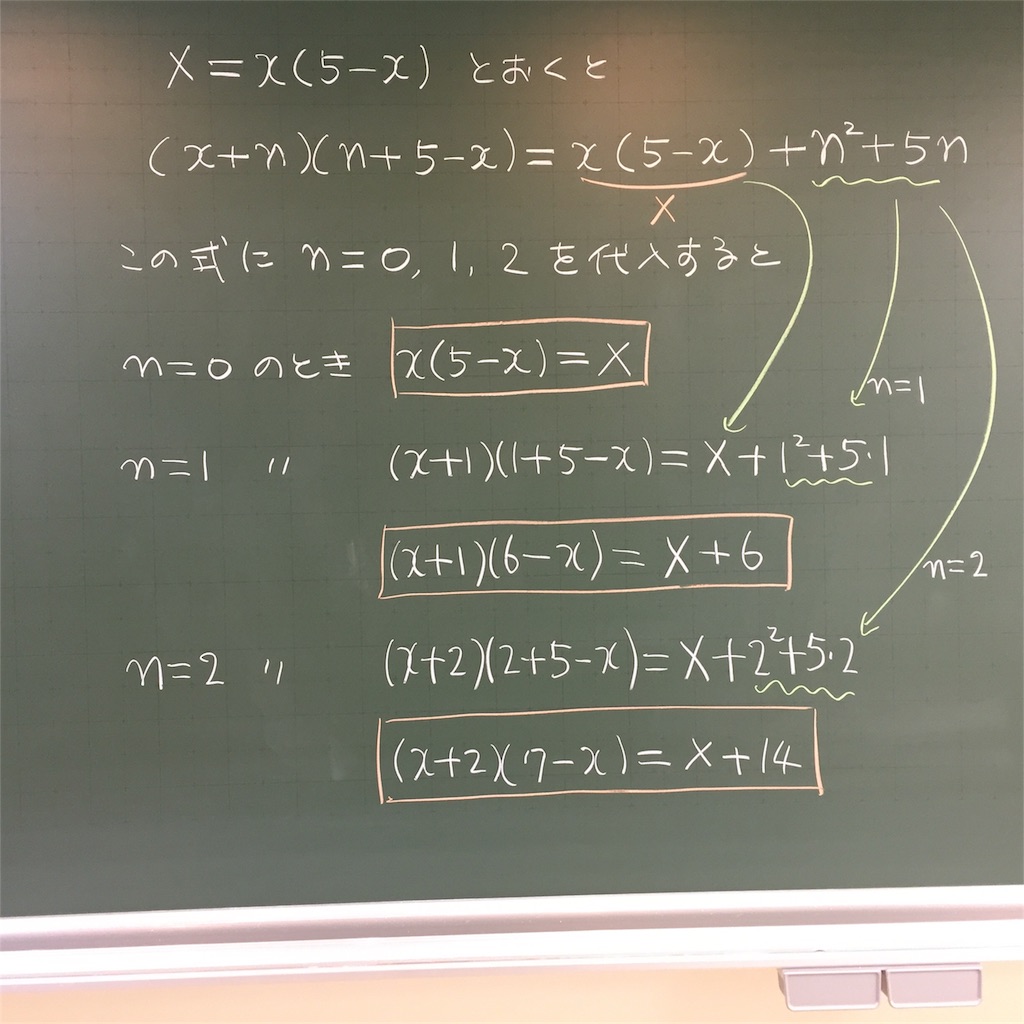 X=x(5-x) とおくと
(x+n)(n+5-x)=x(5-x)+n²+5n
X
この式に n=0, 1, 2 を代入すると
n=0 のとき x(5-x)=X
n=1
n=1 〃 (x+1)(1+5-x)=X+1²+5·1
(x+1)(6-x)=X+6
n=2
n=2 〃 (x+2)(2+5-x)=X+2²+5·2
(x+2)(7-x)=X+14